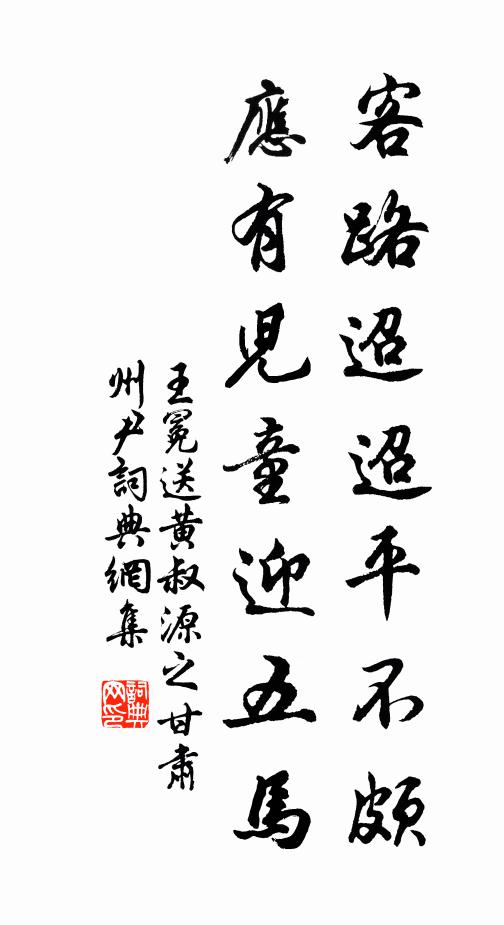 客路迢迢平不頗
應有兒童迎五馬
王冕送黄叔源之甘肅
州尹詞典網集
詞典
网印